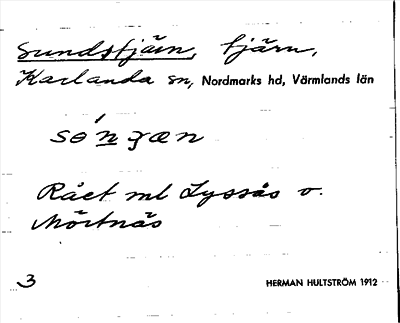 Sundstjärn, tjärn,
Karlanda sn, Nordmarks hd, Värmlands län
Rået ml Lyssås o.
Mörtnäs
3 HERMAN HULTSTRÖM 1912